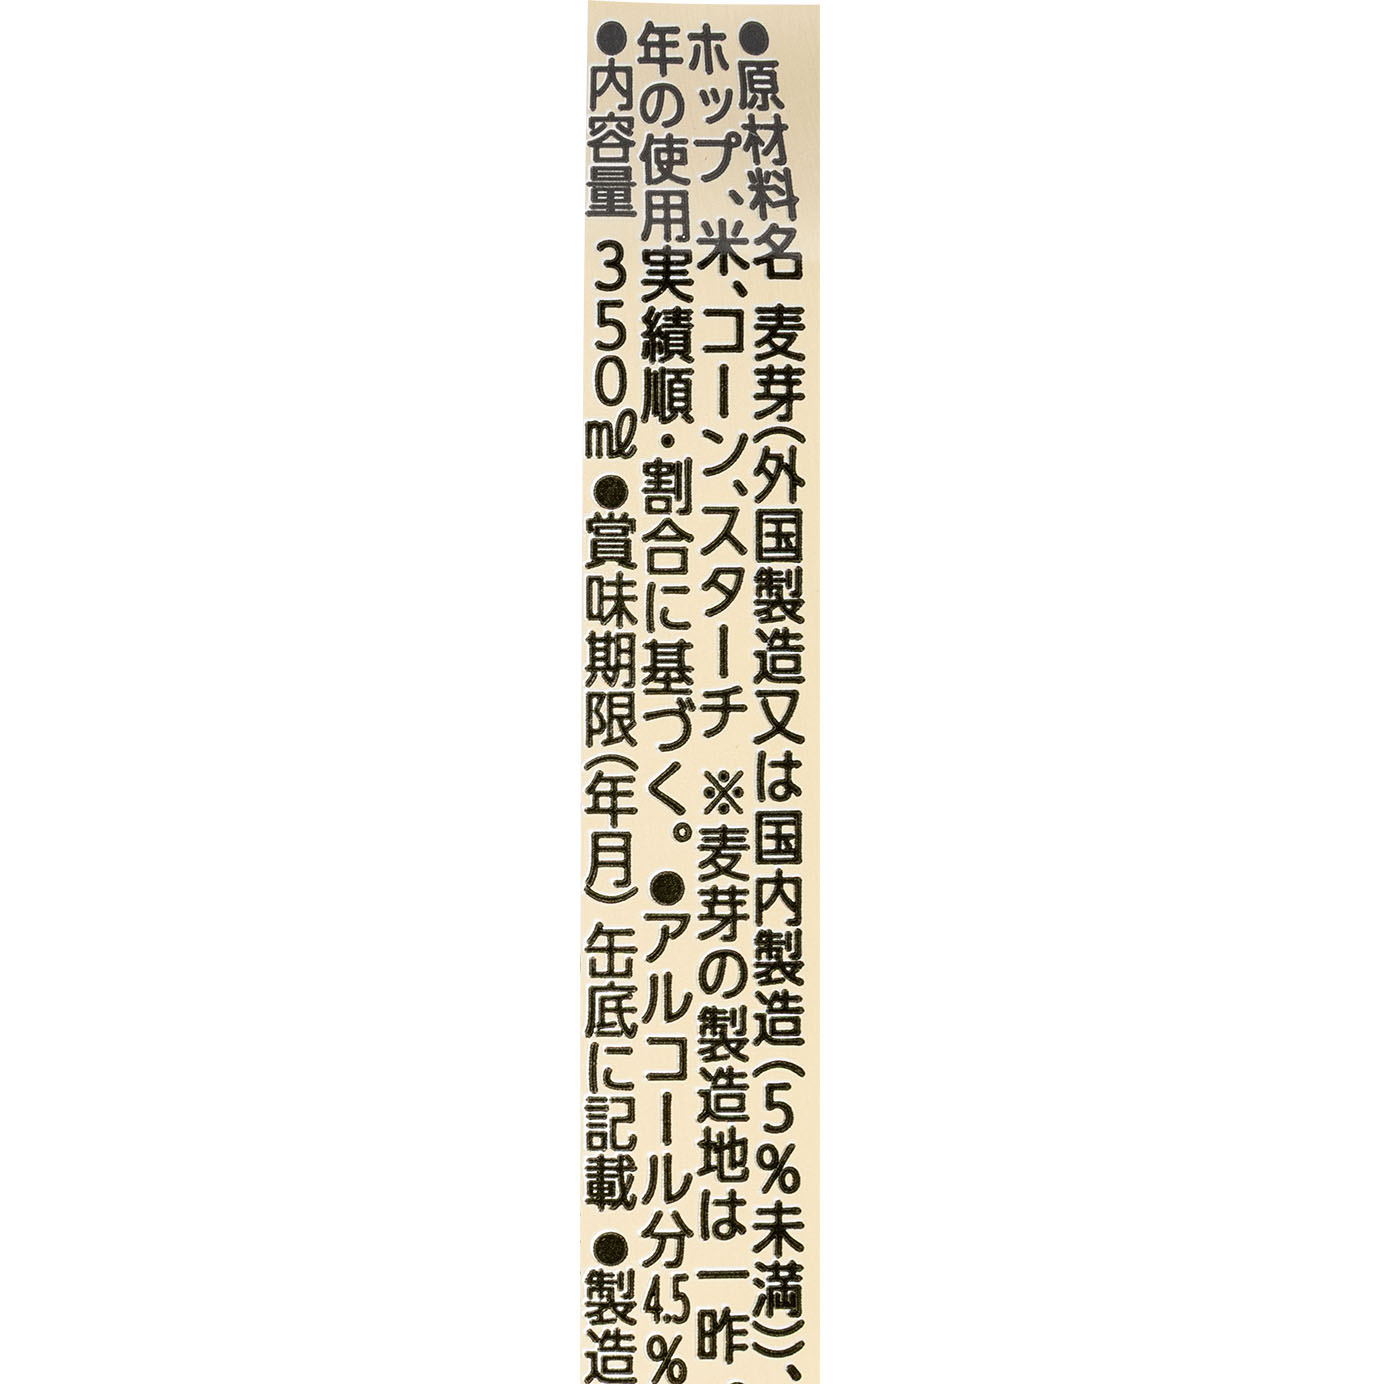 ●原材料名 麦芽(外国製造又は国内製造(5%未満)、
ホップ、米、コーン、スターチ ※麦芽の製造地は一昨
年の使用実績順・割合に基づく。●アルコール分4.5%
●内容量 350ml●賞味期限(年月)缶底に記載 ●製造